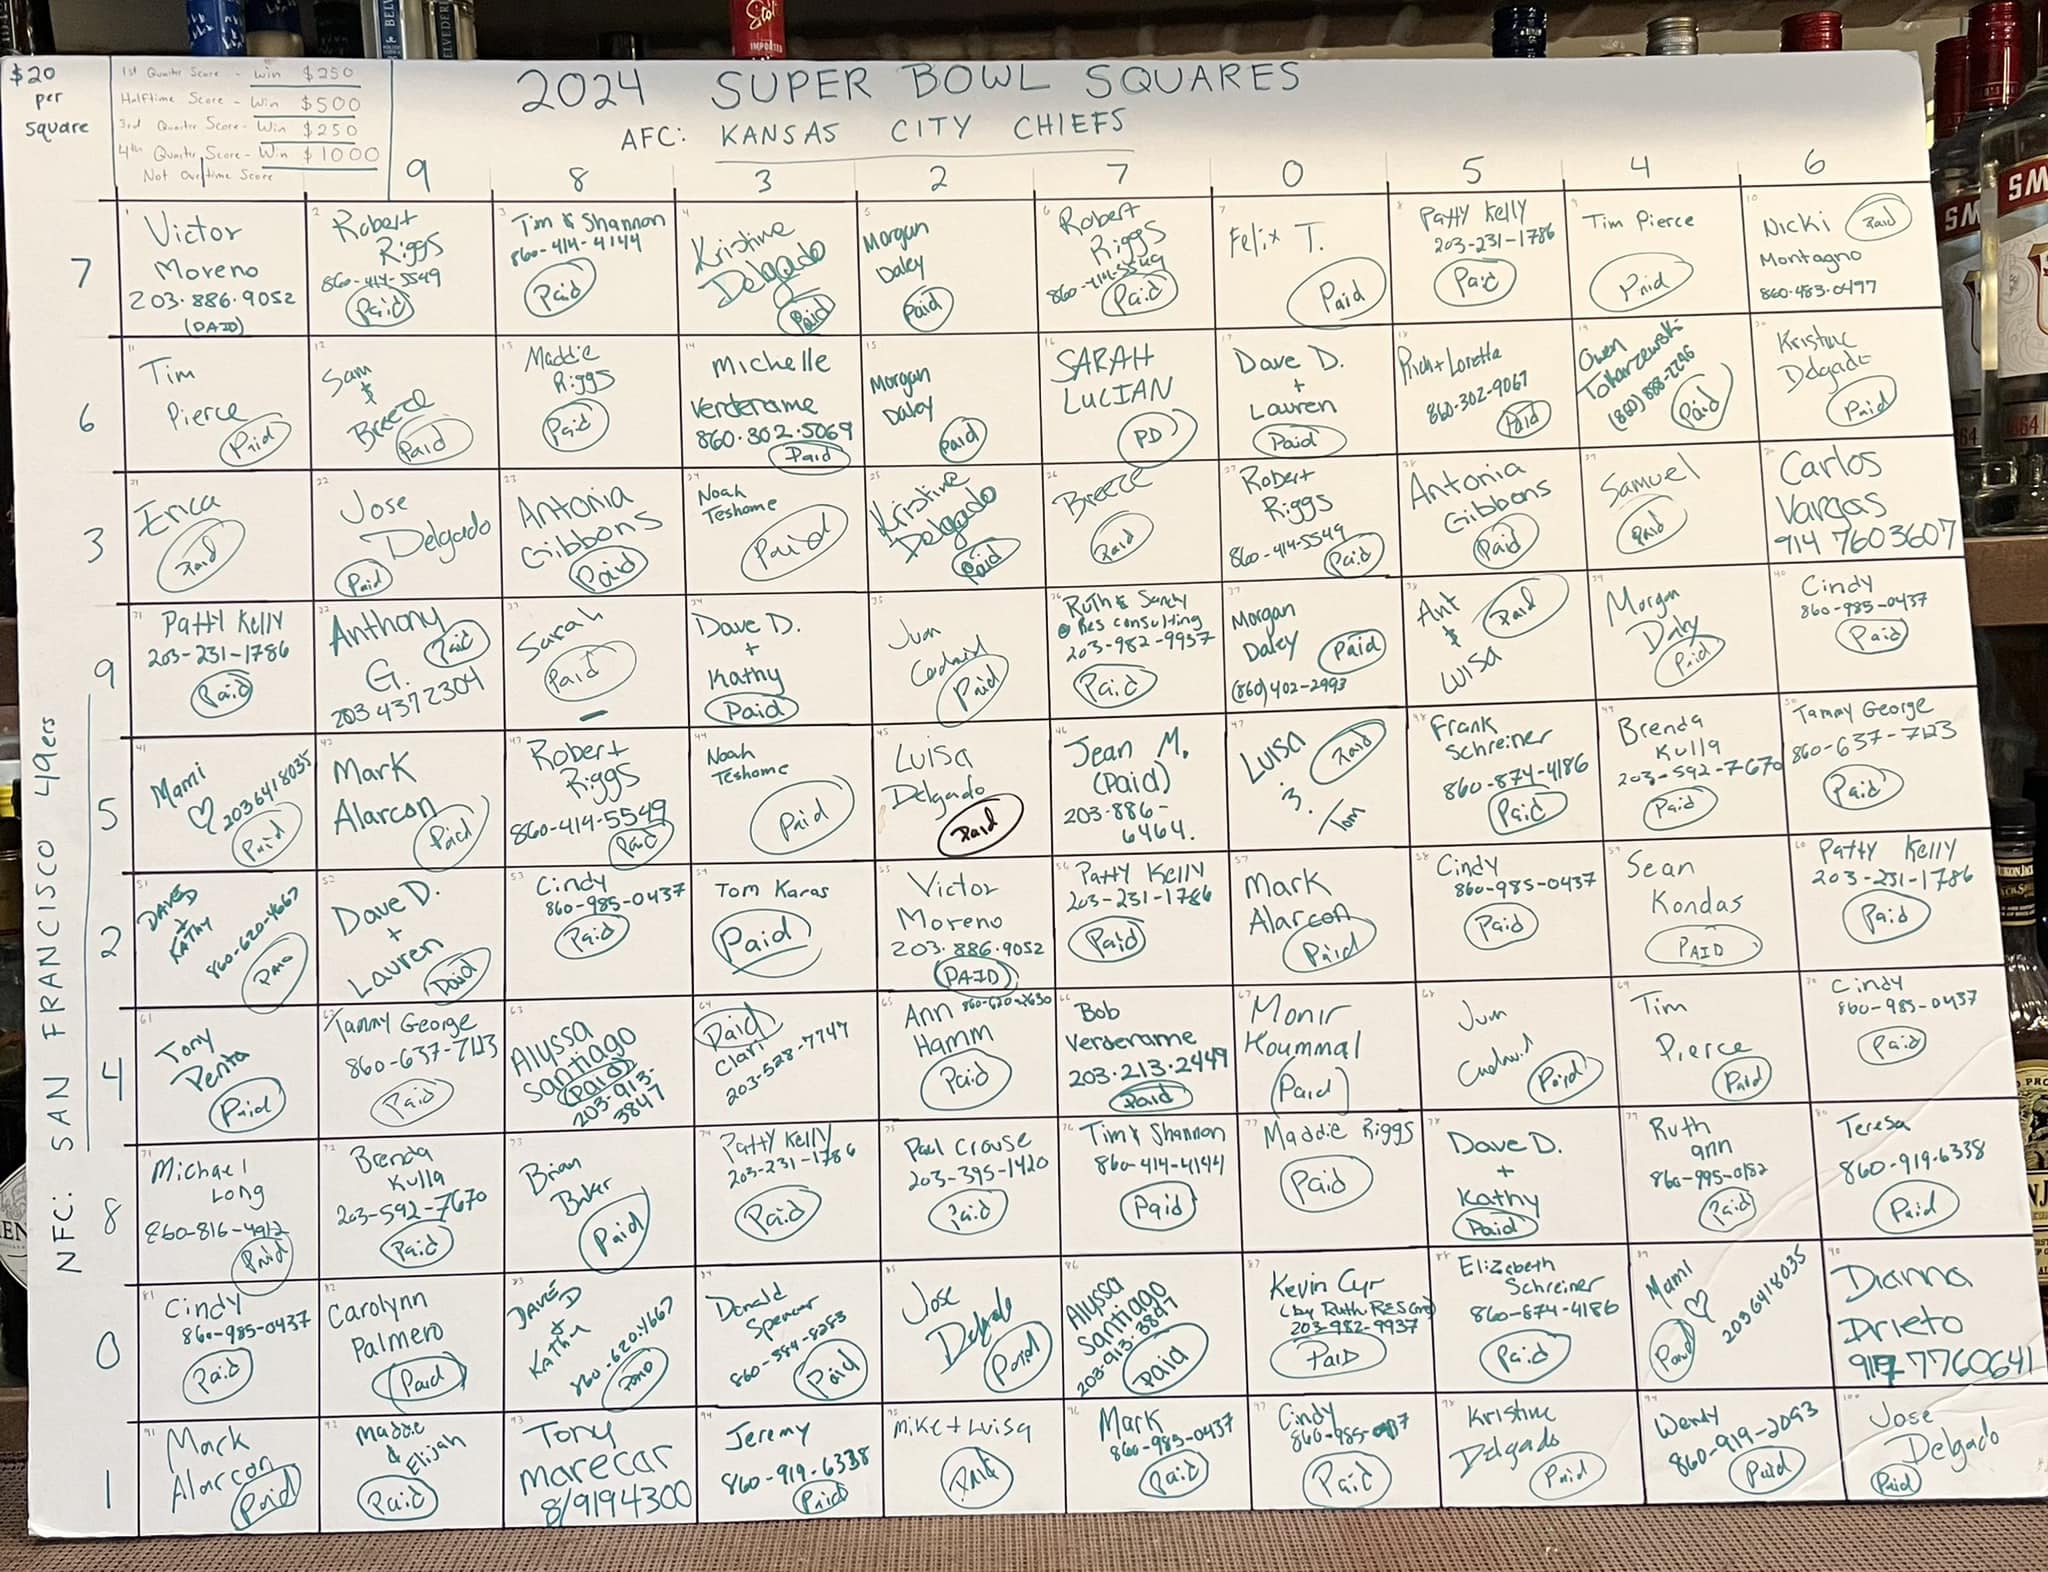 $20
per
square
1st Quarter Score - Win $250
Halftime Score - Win $500
3rd Quarter Score - Win $250
4th Quarter Score - Win $1000
Not Overtime Score
2024 SUPER BOWL SQUARES
AFC: KANSAS CITY CHIEFS
NFC: SAN FRANCISCO 49ers
9 8 3 2 7 0 5 4 6
7
Victor
Moreno
203.886.9052
(PAID)
Robert
Riggs
860-414-5549
Paid
Tim & Shannon
860-414-4144
Paid
Kristine
Delgado
Paid
Morgan
Daley
Paid
Robert
Riggs
860-414-5549
Paid
Felix T.
Paid
Patty Kelly
203-231-1786
Paid
Tim Pierce
Paid
Nicki Paid
Montagno
860-483-0497
6
Tim
Pierce
Paid
Sam
&
Breeze
Paid
Maddie
Riggs
Paid
Michelle
Verderame
860.302.5069
Paid
Morgan
Daley
Paid
SARAH
LUCIAN
PD
Dave D.
+
Lauren
Paid
Rich + Loretta
860-302-9067
Paid
Owen
(860) 888-2296
Paid
Kristine
Delgado
Paid
3
Erica
Paid
Jose
Delgado
Paid
Antonia
Gibbons
Paid
Noah
Teshome
Paid
Kristine
Delgado
Paid
Breeze
Paid
Robert
Riggs
860-414-5549
Paid
Antonia
Gibbons
Paid
Samuel
Paid
Carlos
Vargas
914 7603607
9
Patty Kelly
203-231-1786
Paid
Anthony
Paid
G.
203 437 2304
Sarah
Paid
Dave D.
+
Kathy
Paid
Juan
Paid
Ruth & Sandy
Res Consulting
203-982-9937
Paid
Morgan
Daley Paid
(860) 402-2993
Ant
&
LUISA
Paid
Morgan
Daley
Paid
Cindy
860-985-0437
Paid
5
Mami
♡ 2036418035
Paid
Mark
Alarcon
Paid
Robert
Riggs
860-414-5549
Paid
Noah
Teshome
Paid
Luisa
Delgado
Paid
Jean M.
(Paid)
203-886-
6464.
LUISA
Paid
Tom
Frank
Schreiner
860-874-4186
Paid
Brenda
Kulla
203-592-7670
Paid
Tammy George
860-637-7123
Paid
2
DAVE D
&
KATHY
860-620-4667
PAID
Dave D.
+
Lauren
Paid
Cindy
860-985-0437
Paid
Tom Karas
Paid
Victor
Moreno
203.886.9052
(PAID)
Patty Kelly
203-231-1786
Paid
Mark
Alarcon
Paid
Cindy
860-985-0437
Paid
Sean
Kondas
PAID
Patty Kelly
203-231-1786
Paid
4
Tony
Penta
Paid
Tammy George
860-637-7123
Paid
Alyssa
Santiago
(Paid)
203-913-
3847
Paid
Clari
203-528-7747
Ann
Hamm
Paid
Bob
Verderame
203.213.2449
Paid
Monir
Koummal
(Paid)
Juan
Paid
Tim
Pierce
Paid
Cindy
860-985-0437
Paid
8
Michael
Long
860-816-4912
Paid
Brenda
Kulla
203-592-7670
Paid
Brian
Baker
Paid
Patty Kelly
203-231-1786
Paid
Paul Crouse
203-395-1420
Paid
Tim & Shannon
860-414-4144
Paid
Maddie Riggs
Paid
Dave D.
+
Kathy
Paid
Ruth
ann
860-995-0182
Paid
Teresa
860-919-6338
Paid
0
Cindy
860-985-0437
Paid
Carolynn
Palmero
Paid
DAVE D
&
KATHY
860-620-4667
PAID
Donald
Spencer
860-584-8283
Paid
Jose
Delgado
Paid
Alyssa
Santiago
203-913-3847
Paid
Kevin Cyr
203-982-9937
PAID
Elizabeth
Schreiner
860-874-4186
Paid
Mami
♡
Paid
2036418035
Dianna
Prieto
917 7760641
1
Mark
Alarcon
Paid
Maddie
&
Elijah
Paid
Tony
marecar
8/9194300
Jeremy
860-919-6338
Paid
Mike + Luisa
Paid
Mark
860-985-0437
Paid
Cindy
860-985-0437
Paid
Kristine
Delgado
Paid
Wendy
860-919-2093
Paid
Jose
Delgado
Paid